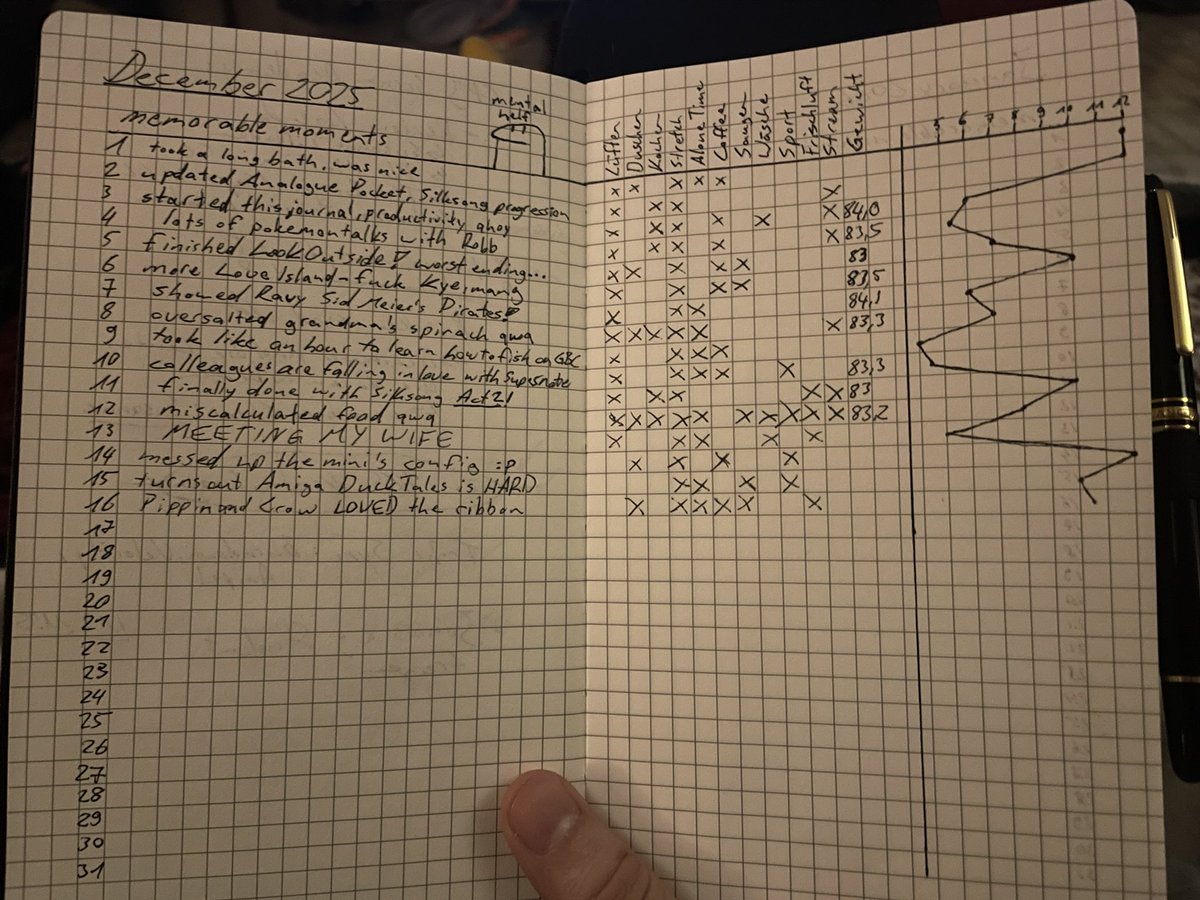 December 2025
mental
memorable moments
1 took a long bath. was nice
2 updated Analogue Pocket, Silksong progression
3 started this journal, productivity ahoy
4 lots of pokemon talks with Robb
5 finished Look Outside! worst ending...
6 more Love Island - fuck Kye, mang
7 showed Ravy Sid Meier's Pirates!
8 oversalted grandma's spinach qwq
9 took like an hour to learn how to fish on GBC
10 colleagues are falling in love with Supernote
11 finally done with Silksong Act 2!
12 miscalculated food qwq
13 MEETING MY WIFE
14 messed up the mini's config :P
15 turns out Amiga DuckTales is HARD
16 Pippin and Crow LOVED the ribbon
17
18
19
20
21
22
23
24
25
26
27
28
29
30
31
Lüften Duschen Kochen Stretch Alone Time Coffee Saugen Wäsche Sport Frischluft Stream Gewicht 5 6 7 8 9 10 11 12
x x x x x
x x x x
x x x x x x 84,0
x x x x x 83,5
x x x x x 83
x x x x 83,5
x x x 84,1
x x x x x x 83,3
x x x x
x x x x x 83,3
x x x x x 83
x x x x x x x x x x 83,2
x x x x x
x x x x
x x x x
x x x x x x